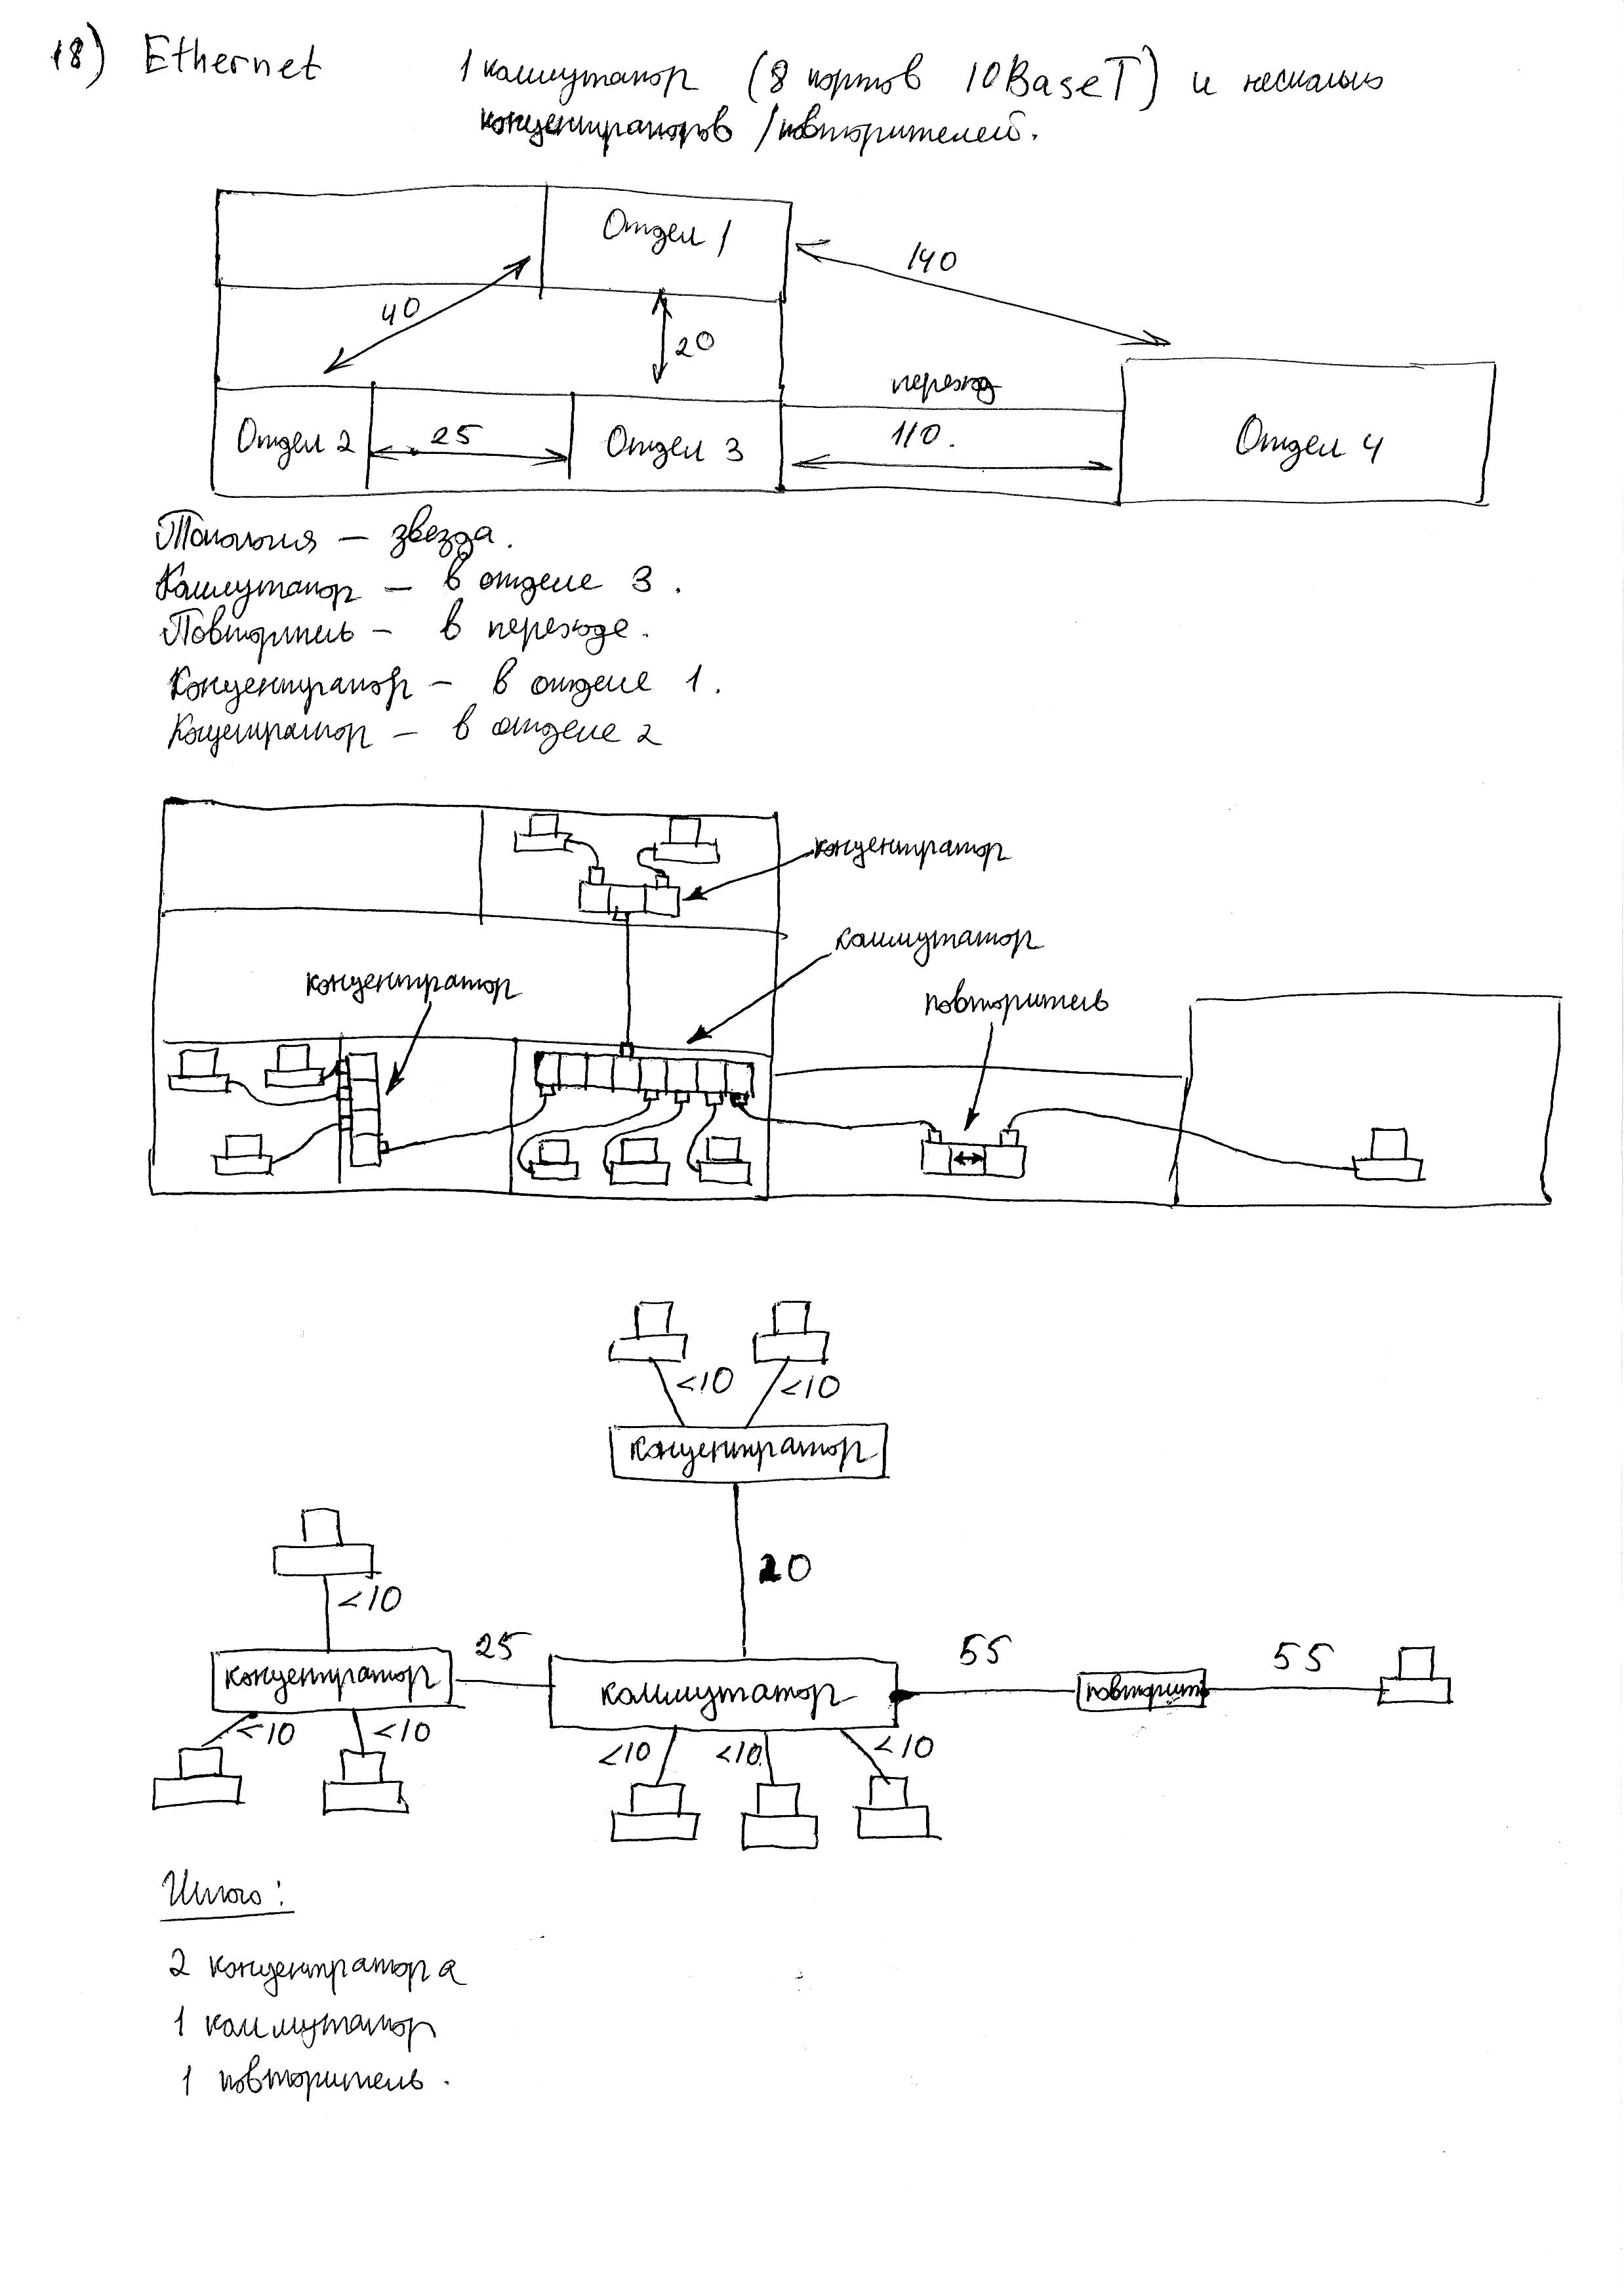 18) Ethernet 1 коммутатор (8 портов 10BaseT) и несколько
концентраторов / повторителей.
Отдел 1
140
40
20
переход
Отдел 2
25
Отдел 3
110.
Отдел 4
Топология – звезда.
Коммутатор – в отделе 3.
Повторитель – в переходе.
Концентратор – в отделе 1.
Концентратор – в отделе 2
концентратор
коммутатор
концентратор
повторитель
<10 <10
концентратор
20
<10
25
55
55
концентратор
коммутатор
повторит
<10 <10
<10 <10 <10
Итого:
2 концентратора
1 коммутатор
1 повторитель.